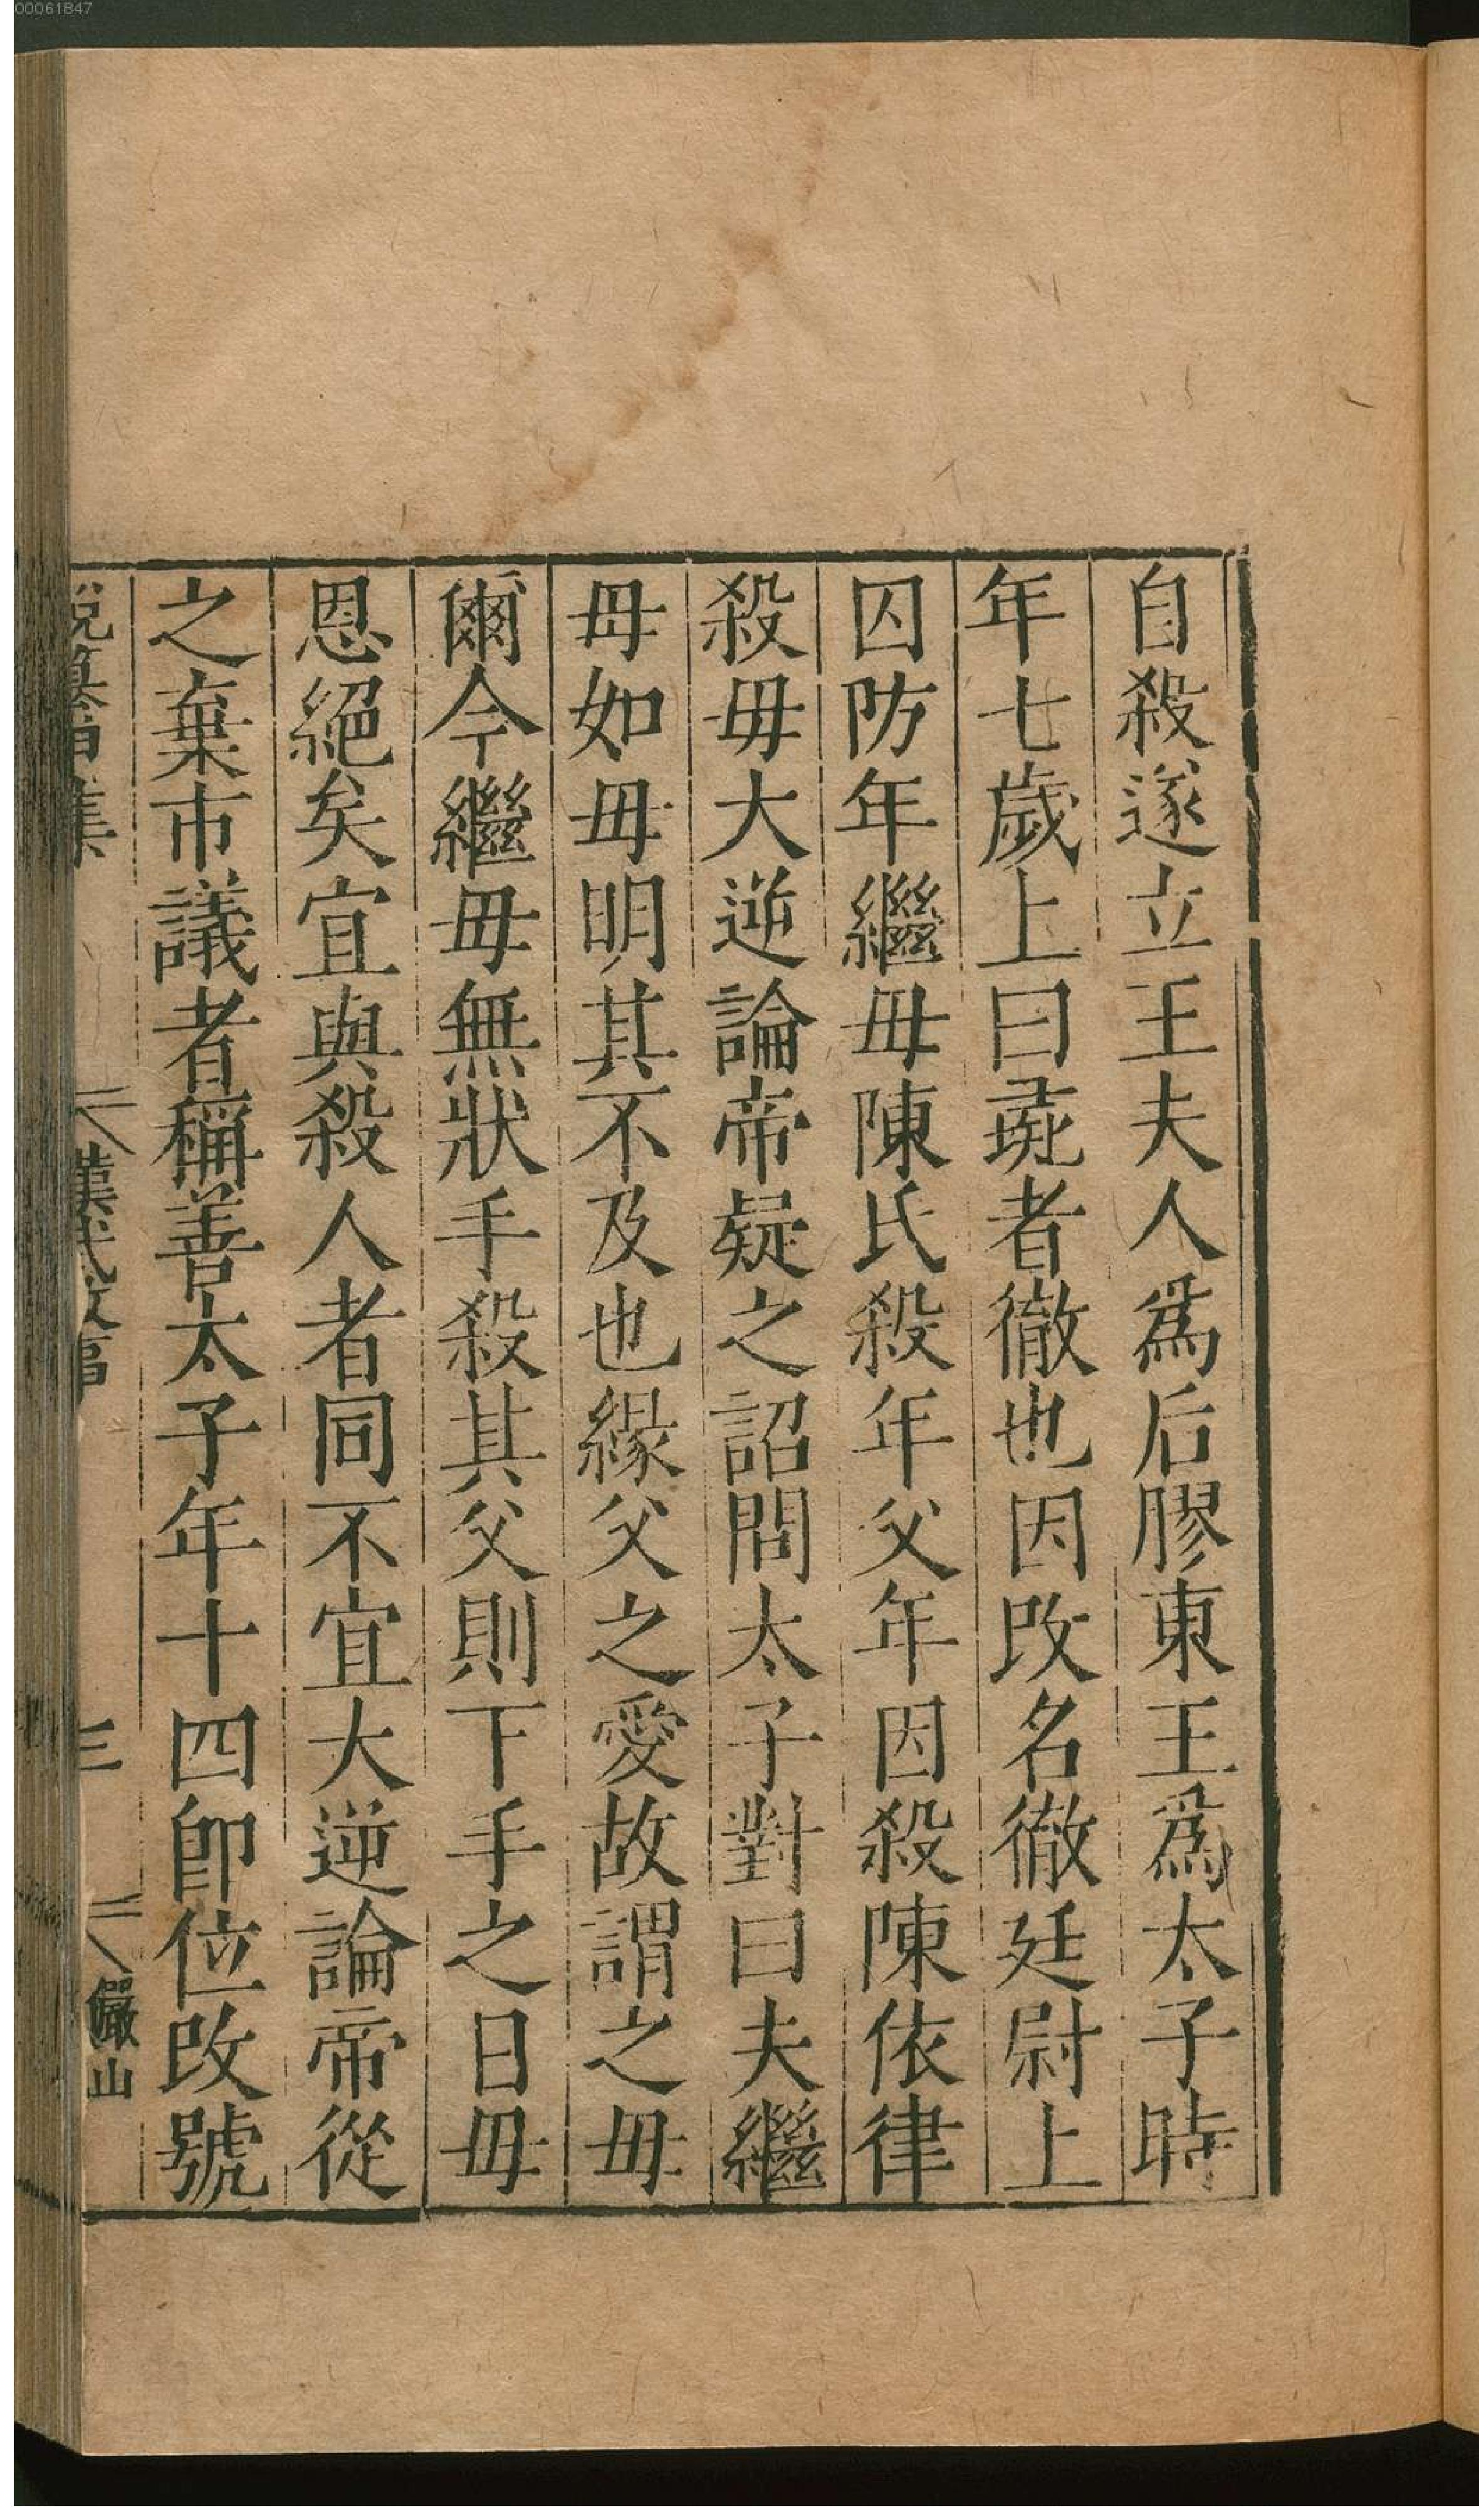 00061847
自殺遂立王夫人爲后膠東王爲太子時
年七歲上曰彘者徹也因改名徹廷尉上
囚防年繼毋陳氏殺年父年因殺陳依律
殺毋大逆論帝疑之詔問太子對曰夫繼
毋如毋明其不及也緣父之愛故謂之毋
爾今繼毋無狀手殺其父則下手之日毋
恩絕矣宜與殺人者同不宜大逆論帝從
之棄市議者稱善太子年十四卽位改號
說纂
集
漢武故事
三
儼山